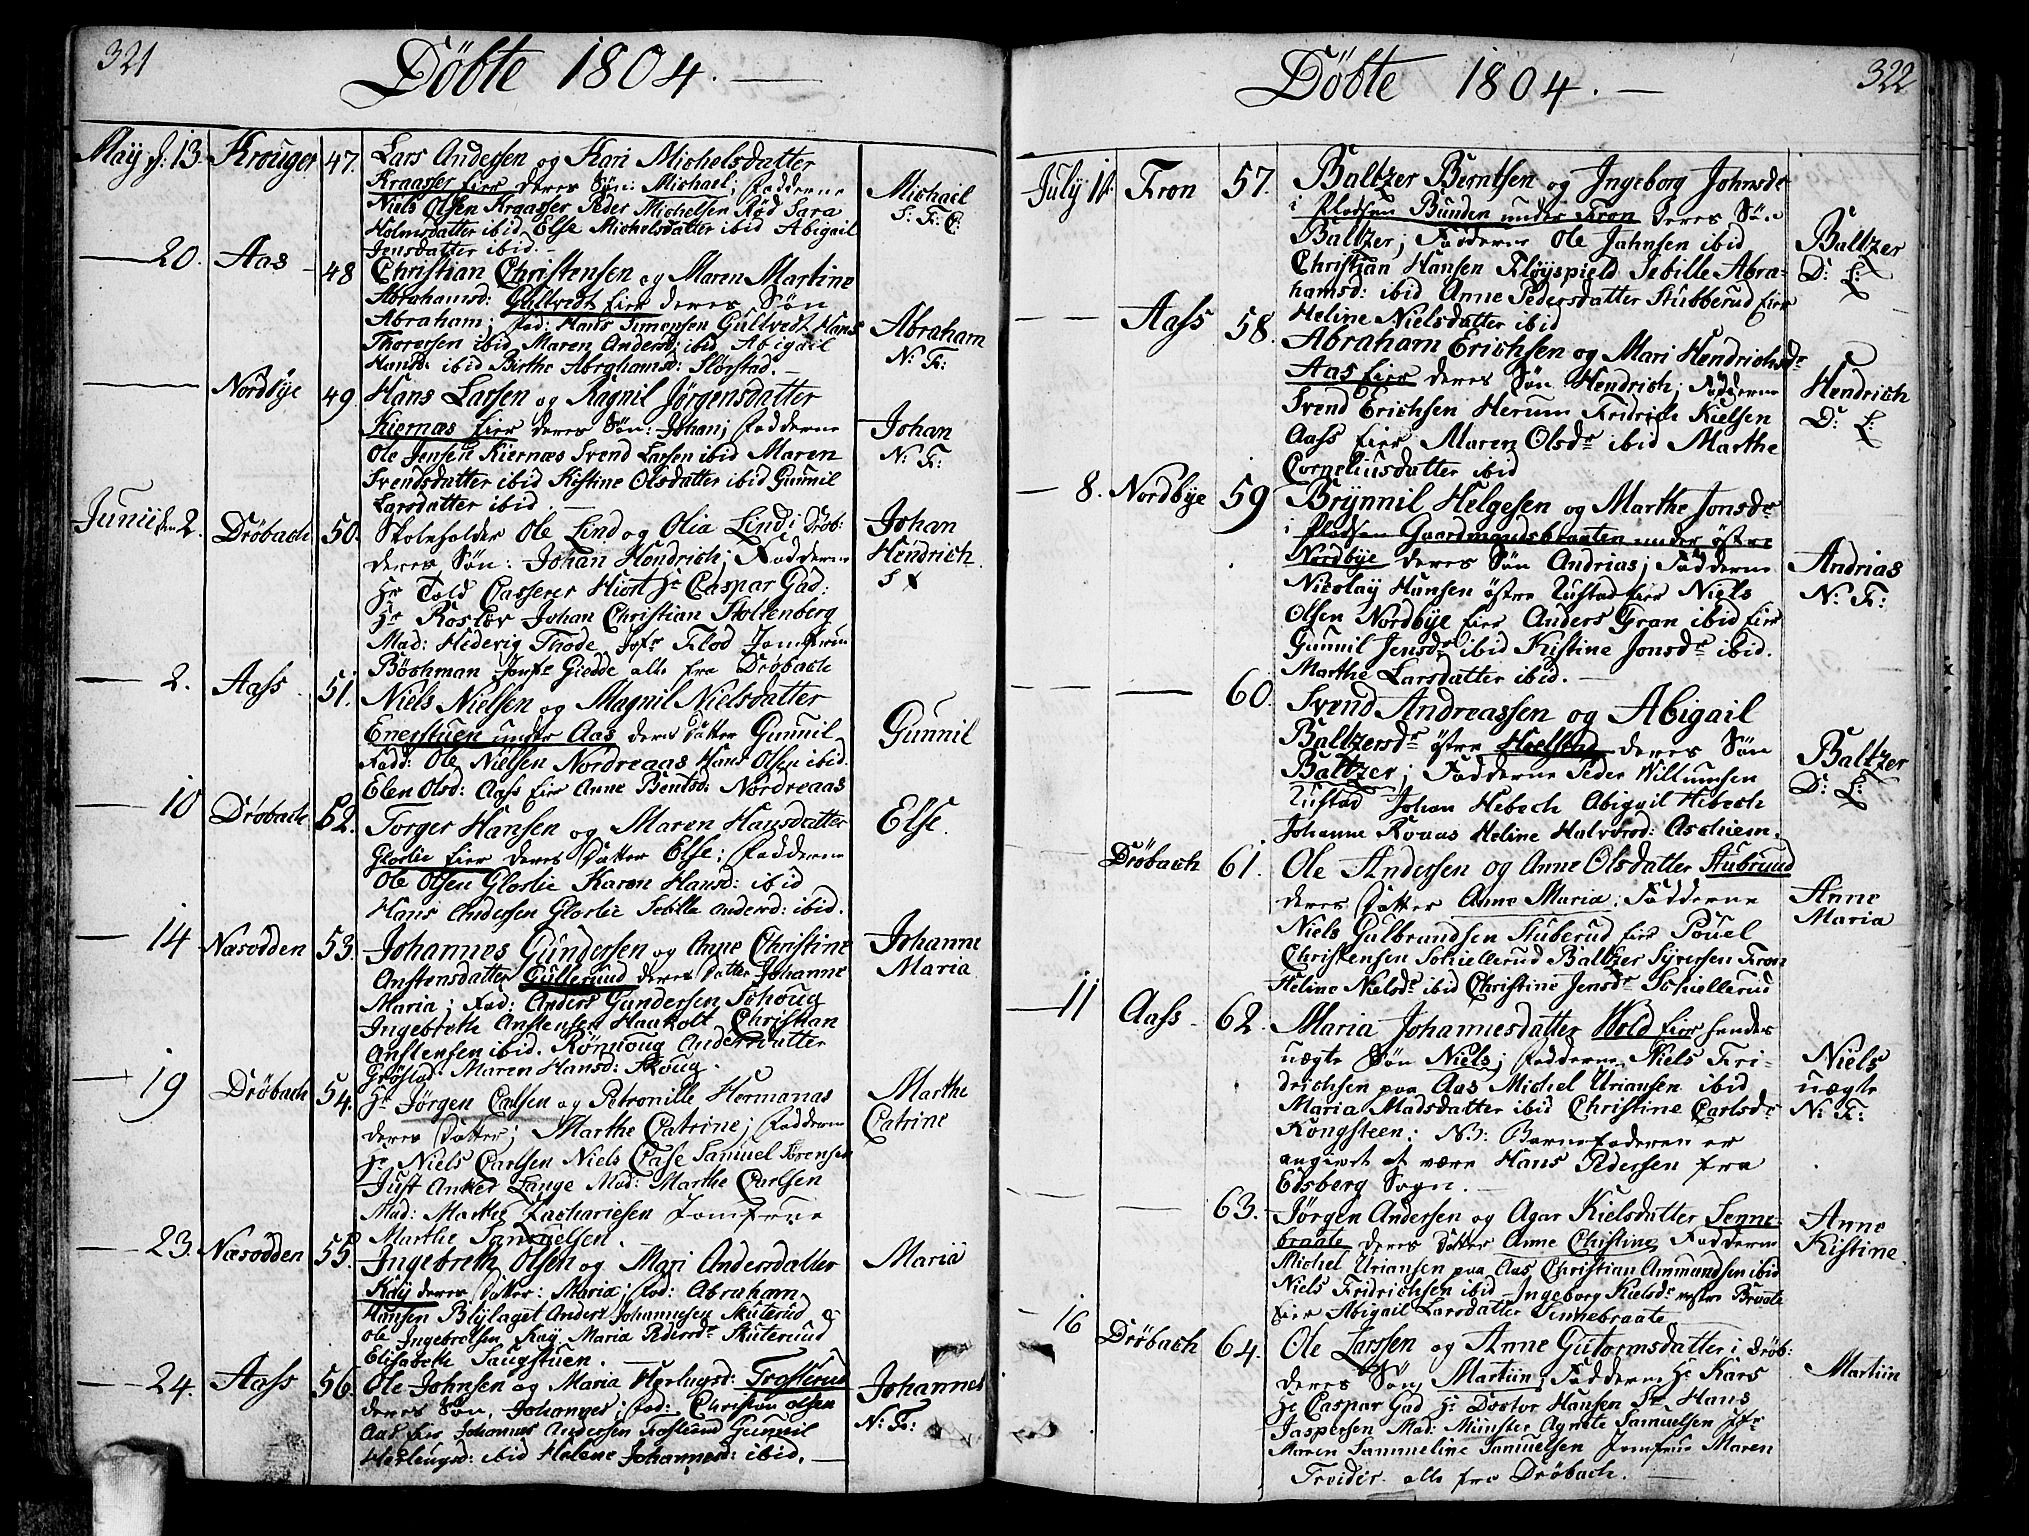 321
Döbte 1804. —
May d: 13. Krouger 47. Lars Andersen og Kari Michelsdatter
Kraager Eier deres Søn: Michael; Fadderne
Niels Olsen Kraager Peder Michelsen Rød Sara
Holmsdatter ibid, Else Michelsdatter ibid Abigail
Jensdatter ibid. —
Michael
S: F: C:
— 20. Aas — 48 Christian Christensen og Maren Martine
Abrahamsd: Gultvedt Eier deres Søn
Abraham; Fad: Hans Simensen Gultvedt Hans
Thorersen ibid, Maren Andersd: ibid Abigail
Hansd: ibid Birthe Abrahamsd: Slorstad. —
Abraham
N: F:
— Nordbÿe 49. Hans Larsen og Ragnil Jörgensdatter
Kiernæs Eier deres Søn: Johan; Fadderne
Ole Jensen Kiernæs Svend Larsen ibid Maren
Svendsdatter ibid Kistine Olsdatter ibid Gunnil
Larsdatter ibid. —
Johan
N: F:
Junii den 2. Dröbach 50. Skoleholder Ole Lind og Olia Lind i Dröb:
deres Søn: Johan Hendrich; Fadderne
Hr Told Casserer Hiort Hr Caspar Gad:
Hr Roslöv Johan Christian Stoltenberg
Mad: Hedevig Thode, Jofr Flod Jomfrue
Böchman Jomfr Giedde alle fra Dröbach
Johan
Hendrich.
— 2. Aass 51. Niels Nielsen og Magnil Nielsdatter
Enerstuen under Aas deres Datter Gunnil
Fadd: Ole Nielsen Nordreaas Hans Olsen ibid.
Elen Olsd: Aass Eier Anne Bentsd: Nordreaas
Gunnil
— 10 Dröbach 52. Torger Hansen og Maren Hansdatter
Glorlie Eier deres Datter Else; Fadderne
Ole Olsen Glorlie Karen Hansd: ibid
Hans Andersen Glorlie Sebille Andersd: ibid.
Else.
— 14 Næsodden 53. Johannes Gundersen og Anne Christine
Anstensdatter Gullerud deres Datter Johanne
Maria; Fad: Anders Gundersen Schoug
Ingebreth Anstensen Haakolt Christian
Anstensen ibid. Römoug Andersdatter
Fröstad. Maren Hansd: Skoug.
Johanne
Maria
— 19 Dröbach 54. Hr Jörgen Carlsen og Petronille Hermanas
deres Datter; Marthe Catrine; Fadderne
Hr Niels Carlsen Niels Case Samuel Sörensen
Just Anker Lange Mad: Marthe Carlsen
Mad: Marthe Zachariesen Jomfrue
Marthe Samuelsen.
Marthe
Catrine
— 23. Næsodden 55. Ingebreth Olsen og Mari Andersdatter
Kay deres Datter: Maria; Fad: Abraham
Hansen Blylaget Anders Johannesen Skuterud
Ole Ingebretsen Kay Maria Pedersdr Skuterud
Elisabeth Saugstuen. —
Maria
— 24. Aass 56. Ole Johnsen og Maria Herlugsd: Trosterud
deres Søn, Johannes; Fad: Christian Olsen
Aas Eier Johannes Andersen Trosterud Gunnil
Herlaugsd: ibid Helene Johannesd: ibid. —
Johannes
N: F:
322
Döbte 1804. —
July 1st Fron 57. Baltzer Berntsen og Ingeborg Johnsdr
i Pladsen Bunden under Fron deres Søn
Baltzer; Fadderne Ole Jahnsen ibid
Christian Hansen Fløyspield Sebille Abra-
hamsd: ibid Anne Pedersdatter Stubberud Eier
Heline Nielsdatter ibid
Baltzer
D: L:
— Aass 58. Abraham Erichsen og Mari Hendrichsdr
Aas Eier deres Søn Hendrich; Fadderne
Svend Erichsen Herum Fridrich Kielsen
Aass Eier Maren Olsdr ibid Marthe
Corneliusdatter ibid
Hendrich
D: L:
— 8. Nordbÿe 59 Brynnil Helgesen og Marthe Jonsdr
i Pladsen Gaardmandsbraaten under östre
Nordbÿe deres Søn Andrias; Fadderne
Nicolay Hansen östre Rustad Eier Niels
Olsen Nordbÿe Eier Anders Gran ibid Eier
Gunnil Jensdr ibid Kistine Jonsdr ibid.
Marthe Larsdatter ibid. —
Andrias
N: F:
— — 60. Svend Andreassen og Abigail
Baltzersdr östre deres Søn
Baltzer; Fadderne Peder Willumsen
Rustad Johan Hebech Abigail Hebech
Johanne Kovaas Heline Halvorsd: Aschiem.
Baltzer
D: L:
— Dröbach 61. Ole Andersen og Anne Olsdatter Stubrud
deres Datter Anne Maria; Fadderne
Niels Gulbrandsen Stuberud Eier Pouel
Christensen Schiellerud Baltzer Syversen Fron
Heline Nielsdr ibid Christine Jensdr Schiellerud
Anne
Maria
— 11 Aass 62. Maria Johannesdatter Wold Eier hendes
uægte Søn Niels; Fadderne Niels Fri-
drichsen paa Aas Michel Uriansen ibid
Maria Madsdatter ibid Christine Carlsdr
Kongsteen: NB: Barnefaderen er
angivet at være Hans Pedersen fra
Edsberg Sogn. —
Niels
uægte
N: F:
— — 63. Jörgen Andersen og Agar Kielsdatter Senne-
braate deres Datter Anne Christine, Fadderne
Michel Uriansen paa Aas Christian Ammundsen ibid
Niels Fridrichsen ibid Ingeborg Kielsdr vestre Braate
Eier Abigail Larsdatter Sinnebraate.
Anne
Kistine
— 16 Dröbach 64. Ole Larssen og Anne Gutormsdatter i Dröb:
deres Søn, Martiin; Fadderne Hr Kars
Hr Caspar Gad Hr Doctor Hansen Sr Hans
Jaspersen Mad: Münster Agnete Samuelsen Jfr
Maren Sammeline Samuelsen Jomfrue Maren
Treider alle fra Dröbach. —
Martiin